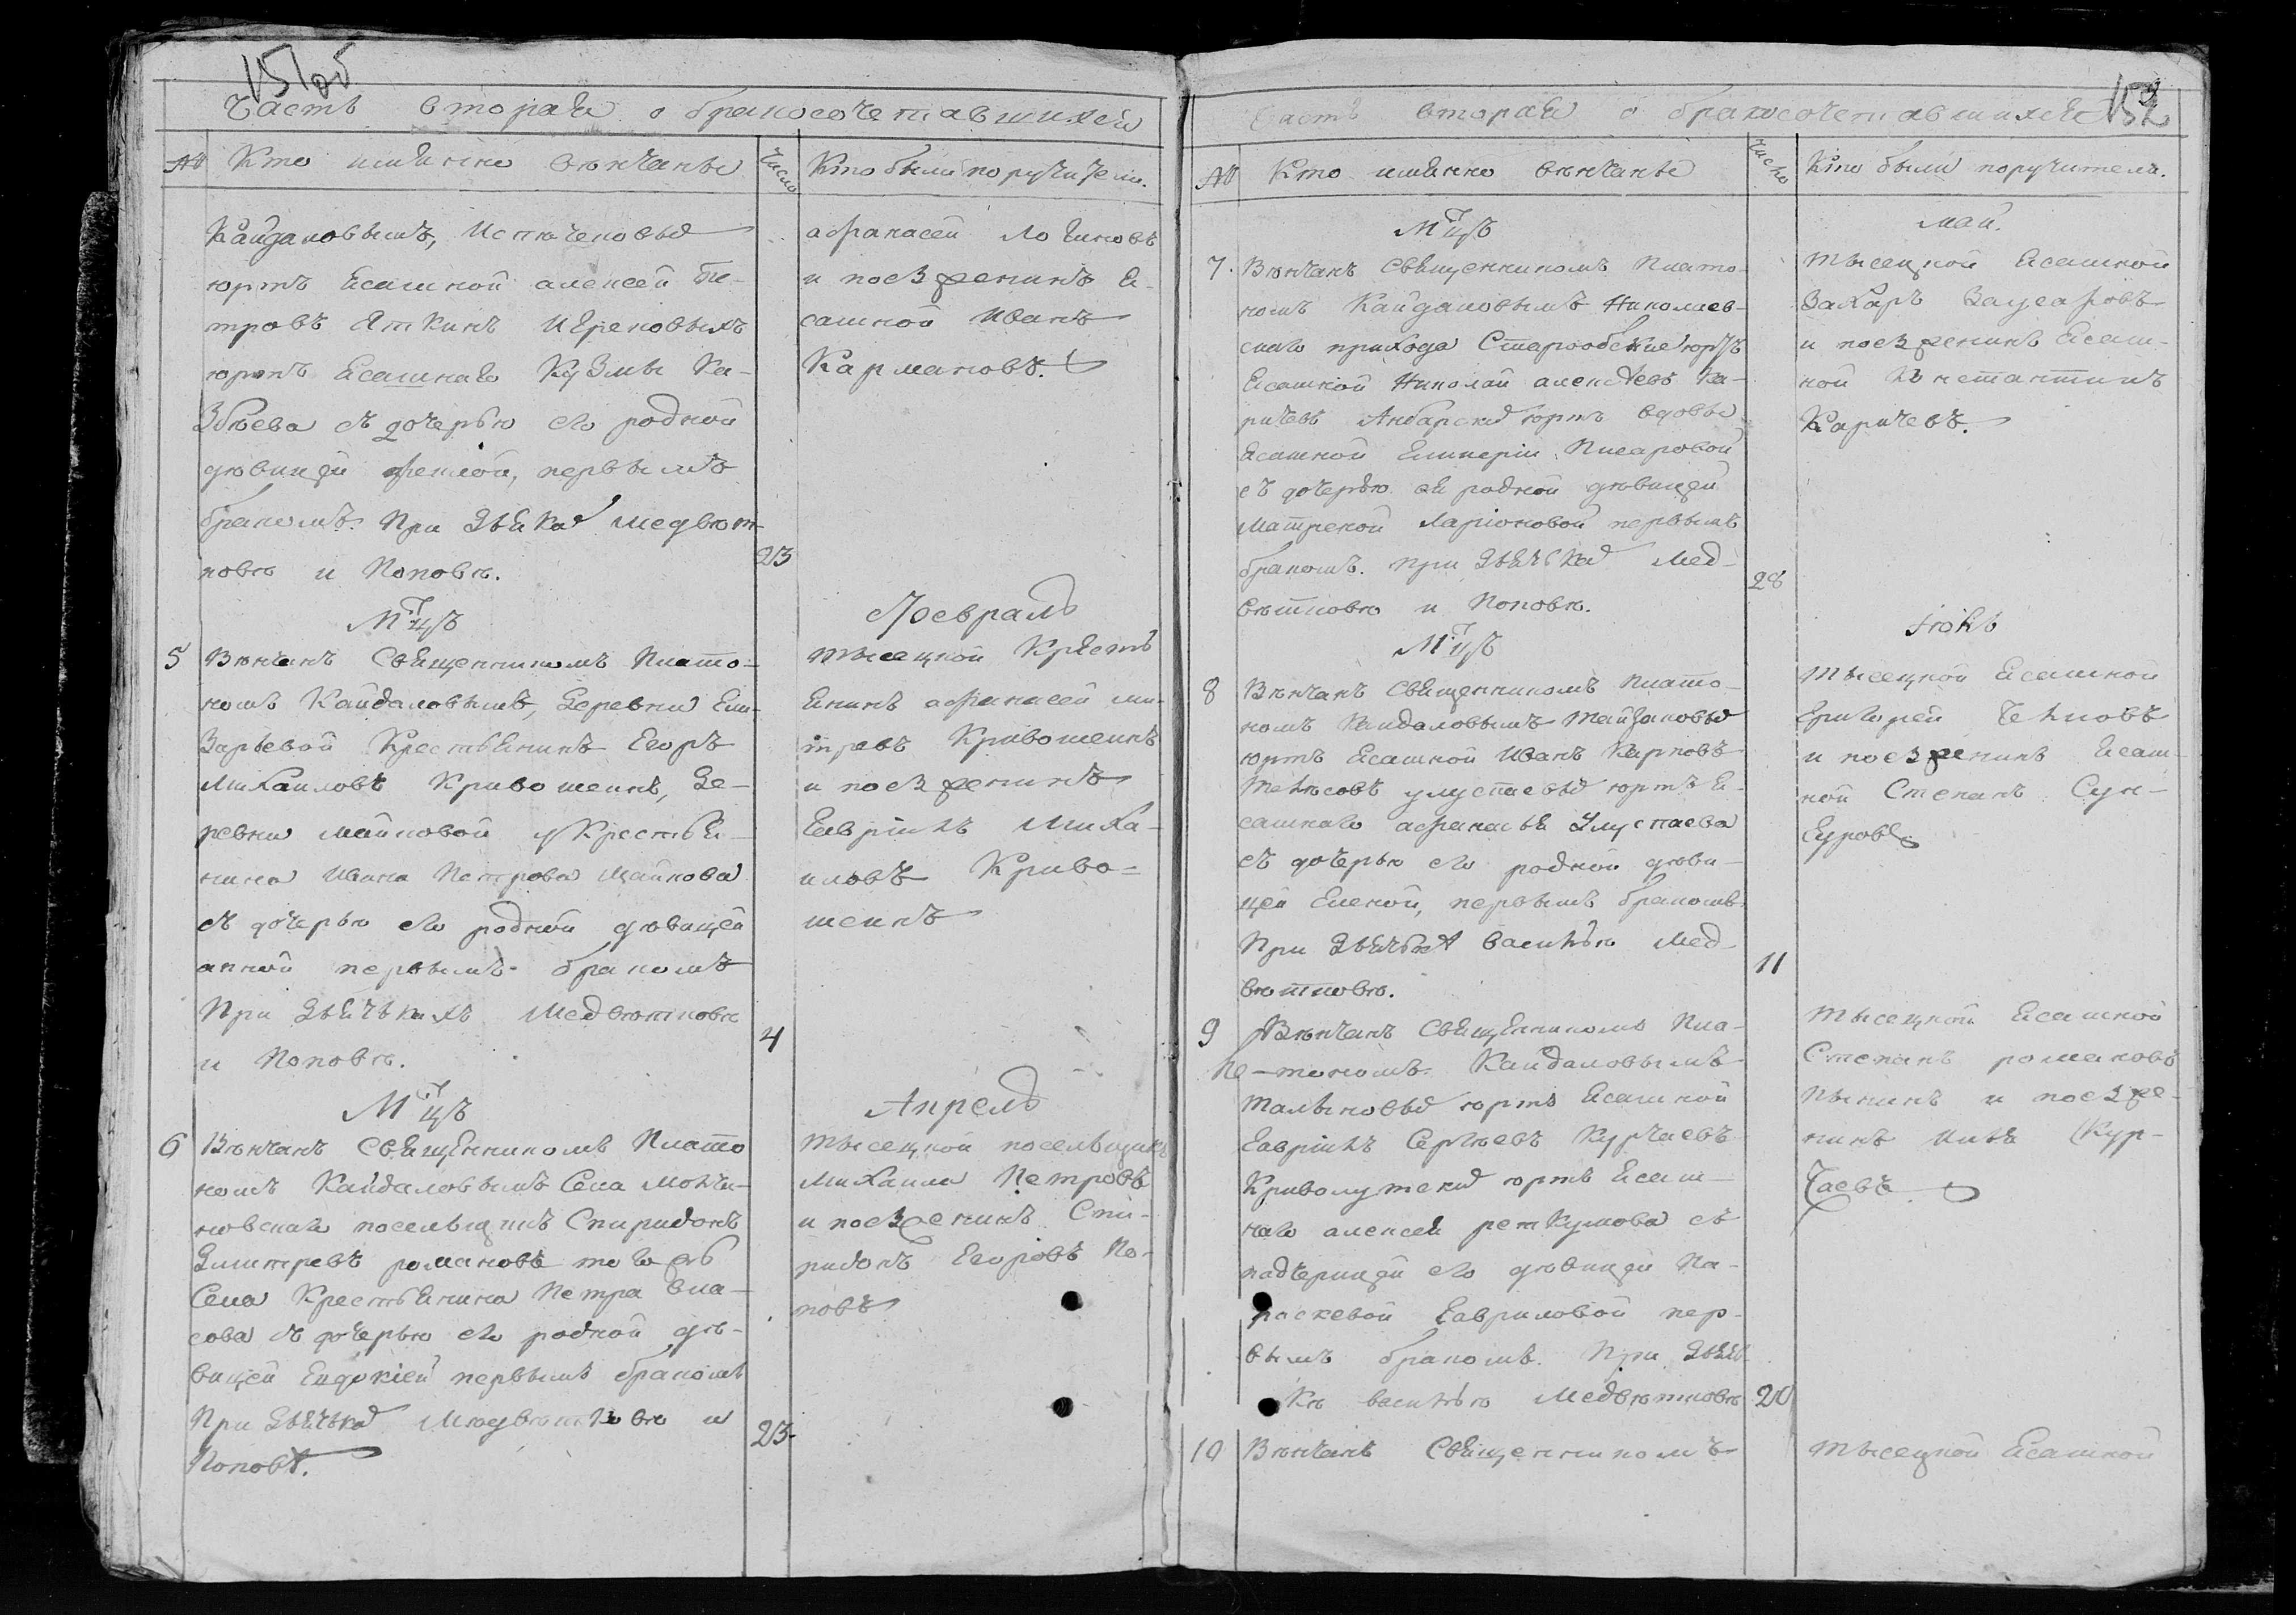 151об
Часть вторая о бракосочетавшихся
№ Кто имянно венчаны
Число
Кто были поручители.
Кайдаловымъ,
юртъ Ясашной алексей Пе-
тровъ
юртъ Ясашнаго Кузмы Ка-
съ дочерью его родной
девицей феклой, первымъ
бракомъ. При дьяка Медвет-
кове и Попове.
23
афанасей Логиновъ
и поезженинъ Я-
сашной Иванъ
Кармановъ.
М-цъ
Февраль
5
Венчанъ Священникомъ Плато-
номъ Кайдаловымъ, Деревни Ель-
Заръевой Крестьянинъ Егоръ
Михаиловъ Кривошеинъ, Де-
ревни Майковой у Крестья-
нина Ивана Петрова Майкова
съ дочерью его родной девицей
анной первымъ бракомъ
При дьячькахъ Медветкове
и Попове.
4
тысецкой Крясть
янинъ афанасей ми-
тревъ Кривошеинъ
и поезженинъ
Гавріилъ Миха-
иловъ Криво=
шеинъ
М-цъ
Апрель
6
Венчанъ Священникомъ Плато
номъ Кайдаловымъ Села Молчи-
новскаго посельщикъ Спиридонъ
Дмитревъ романовъ того об
Села Крестьянина Петра Вла-
сова съ дочерью его родной де-
вицей Евдокіей первымъ бракомъ
При дьячька Медветкове и
Попове.
23
тысецкой посельщикъ
Михаила Петровъ
и поезженинъ Спи-
ридонъ Егоровъ По-
повъ
152
Часть вторая о бракосочетавшихся
№ Кто имянно венчаны
Число
Кто были поручители.
М-цъ
май.
7.
Венчанъ Священникомъ Плато-
номъ Кайдаловымъ Николаев-
скаго прихода Старообские юртъ
Ясашной Николай алексеевъ Ка-
ричевъ Анбарски юртъ вдовы
Ясашной Гликеріи Писаровой
съ дочерью ея родной девицей
Матреной Ларіоновой первымъ
бракомъ. при дьячька Мед-
веткове и Попове.
28
тысецкой Ясашной
Захаръ
и поезженинъ Ясаш-
ной Константинъ
Каричевъ.
М-цъ
Іюнь
8
Венчанъ Священникомъ Плато-
номъ Кайдаловымъ Тайзаковы
юртъ Ясашной Иванъ Карповъ
улуспаевы юртъ Я-
сашнаго афанасья Улуспаева
съ дочерью его родной деви-
цей Еленой, первымъ бракомъ.
При дьячьке Василью Мед-
веткове.
11
тысецкой Ясашной
Григорей
и поезженинъ Ясаш-
ной Степанъ Сун-
гуровъ
9
Венчанъ Священникомъ Пла-
тономъ Кайдаловымъ
Талыковы юртъ Ясашной
Гавріилъ Сергеевъ Курчаевъ
Криволутски юртъ Ясаш-
наго алексея реткумова съ
падчерицей его девицей Па-
раскевой Гавриловой пер-
вымъ бракомъ. При дьячь-
ке Василью Медветкове
20
тысецкой Ясашной
Степанъ романовъ
Пынинъ и поезже-
нинъ Илья Кур-
чаевъ
10
Венчанъ Священникомъ
тысецкой Ясашной